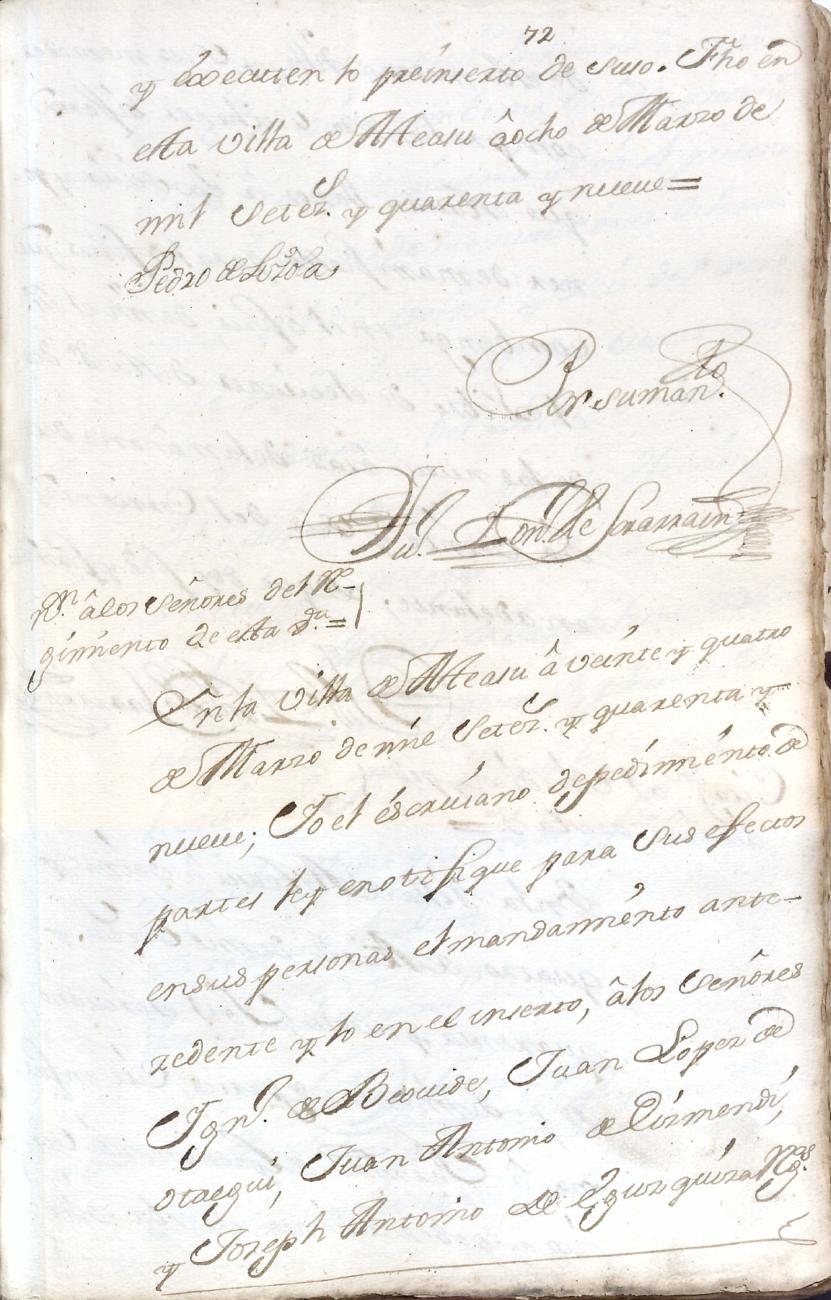 72
y executen lo preinserto de suso. Fho en
esta villa de Ateasu â ocho de Marzo de
mil Setez.s y quarenta y nueue=
Pedro de Lozola
Pr. su man.to
Ju.
de Larrarain
n.on â los Señores del Re-
gimiento de esta v.a=
En la villa de Ateasu â veinte y quatro
de Marzo de mil Setez.s y quarenta y
nueue; Yo el escriuano de pedimiento de
partes ley e notifique para sus effectos
en sus personas el mandamiento ante-
zedente y lo en el inserto, â los Señores
Ign.o de Beouide, Juan Lopez de
otaegui, Juan Antonio de Lizmendi,
y Joseph Antonio de Eguzquiza